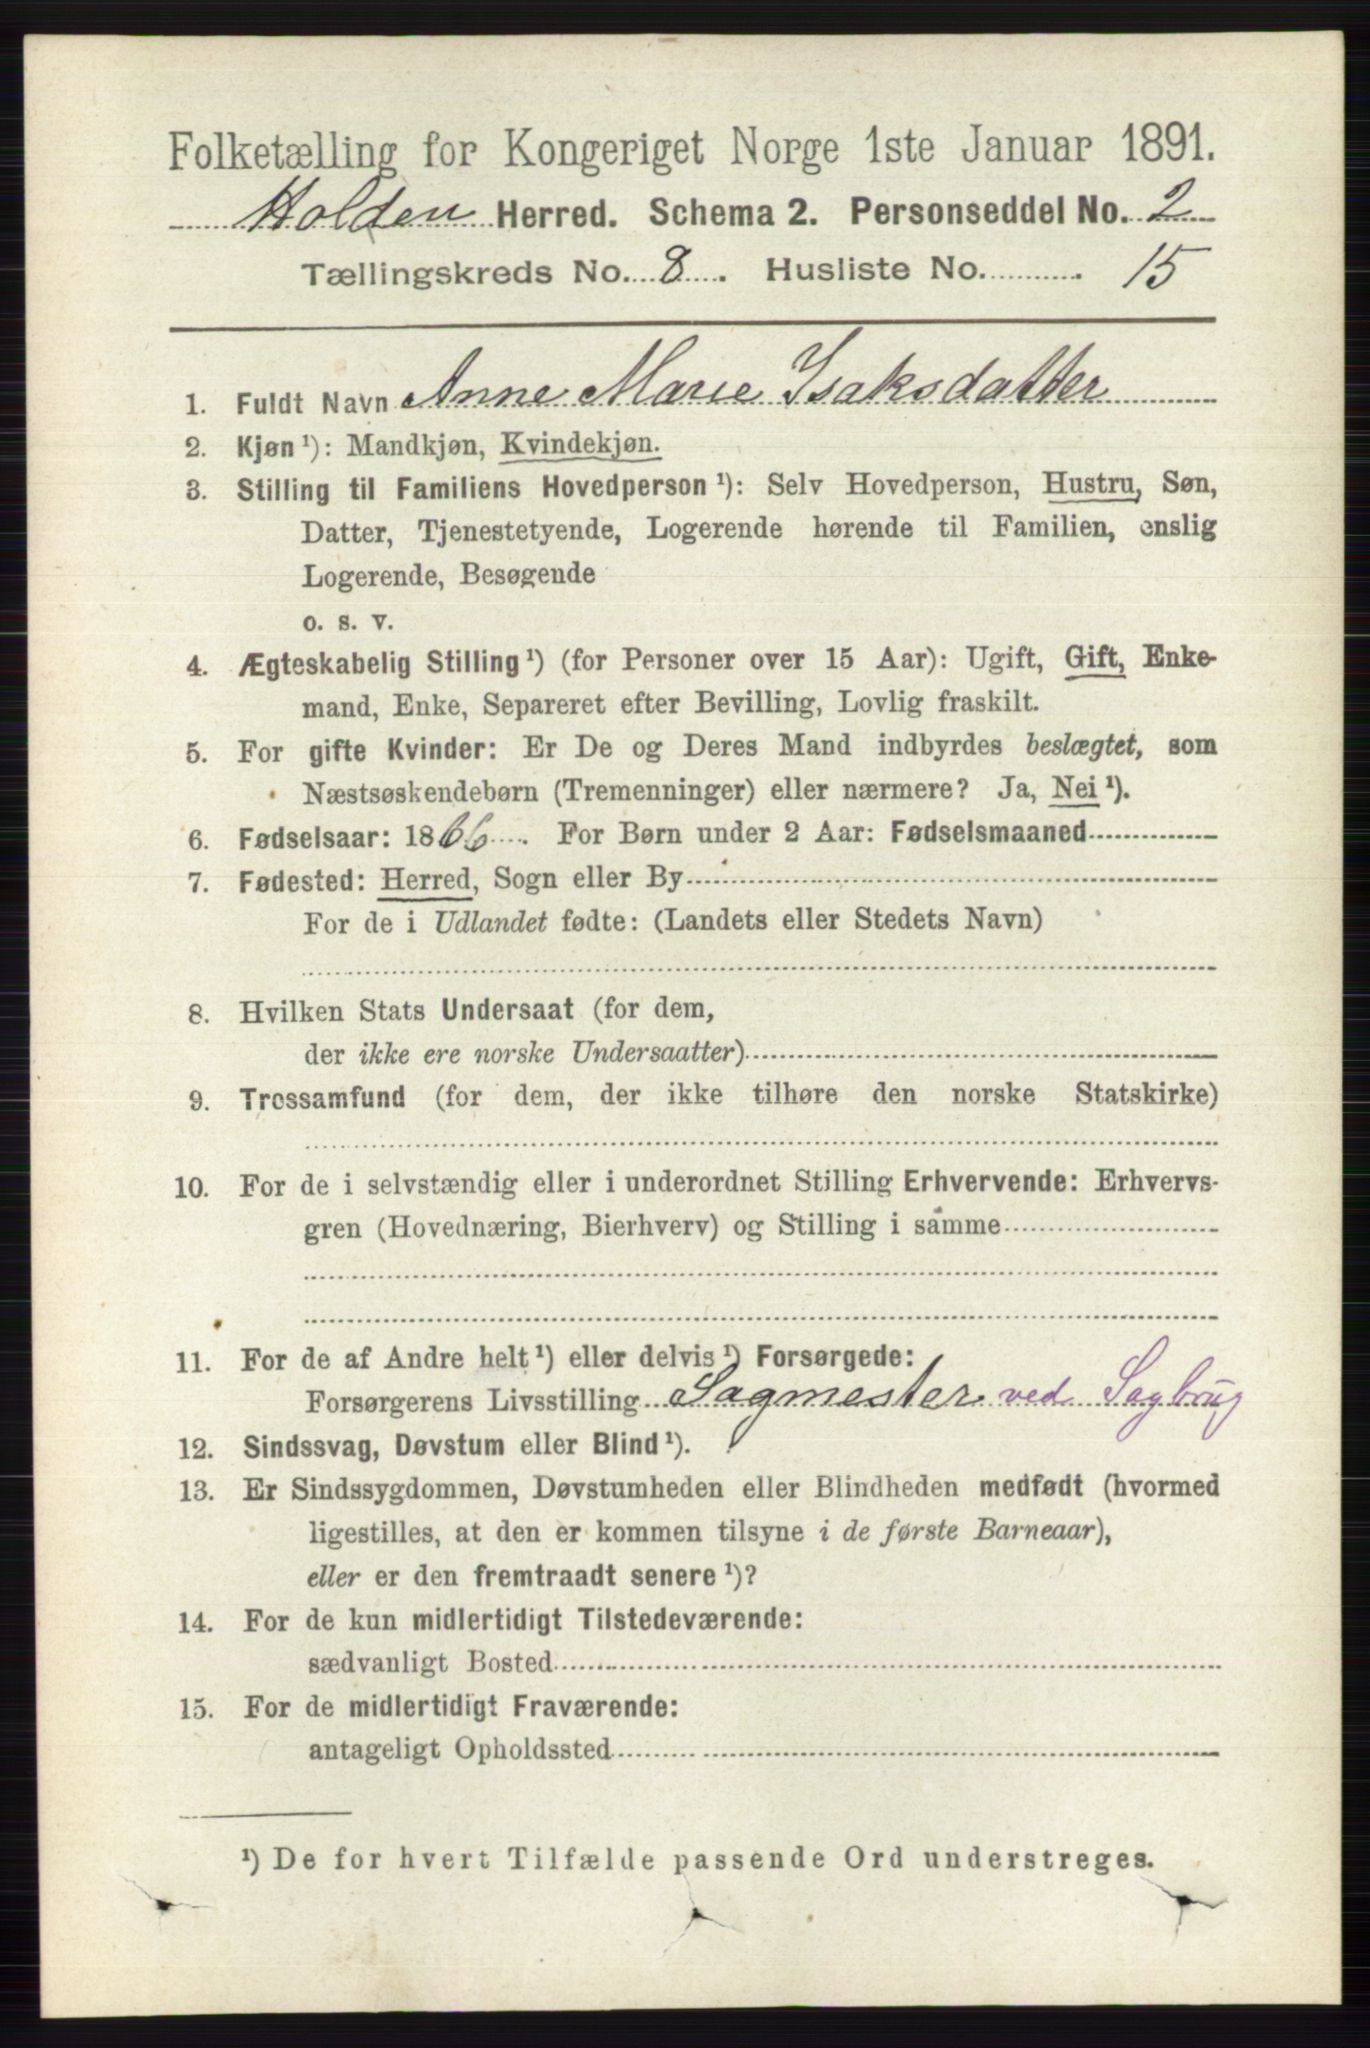 Folketælling for Kongeriget Norge 1ste Januar 1891.
Holden Herred. Schema 2. Personseddel No. 2
Tællingskreds No. 8. Husliste No. 15
1. Fuldt Navn Anne Marie Isaksdatter
2. Kjøn ¹): Mandkjøn, Kvindekjøn.
3. Stilling til Familiens Hovedperson ¹): Selv Hovedperson, Hustru, Søn,
Datter, Tjenestetyende, Logerende hørende til Familien, enslig
Logerende, Besøgende
o. s. v.
4. Ægteskabelig Stilling ¹) (for Personer over 15 Aar): Ugift, Gift, Enke-
mand, Enke, Separeret efter Bevilling, Lovlig fraskilt.
5. For gifte Kvinder: Er De og Deres Mand indbyrdes beslægtet, som
Næstsøskendebørn (Tremenninger) eller nærmere? Ja, Nei ¹).
6. Fødselsaar: 1866. For Børn under 2 Aar: Fødselsmaaned
7. Fødested: Herred, Sogn eller By
For de i Udlandet fødte: (Landets eller Stedets Navn)
8. Hvilken Stats Undersaat (for dem,
der ikke ere norske Undersaatter)
9. Trossamfund (for dem, der ikke tilhøre den norske Statskirke)
10. For de i selvstændig eller i underordnet Stilling Erhvervende: Erhvervs-
gren (Hovednæring, Bierhverv) og Stilling i samme
11. For de af Andre helt ¹) eller delvis ¹) Forsørgede:
Forsørgerens Livsstilling Sagmester ved Sagbrug
12. Sindssvag, Døvstum eller Blind ¹).
13. Er Sindssygdommen, Døvstumheden eller Blindheden medfødt (hvormed
ligestilles, at den er kommen tilsyne i de første Barneaar),
eller er den fremtraadt senere ¹)?
14. For de kun midlertidigt Tilstedeværende:
sædvanligt Bosted
15. For de midlertidigt Fraværende:
antageligt Opholdssted
¹) De for hvert Tilfælde passende Ord understreges.